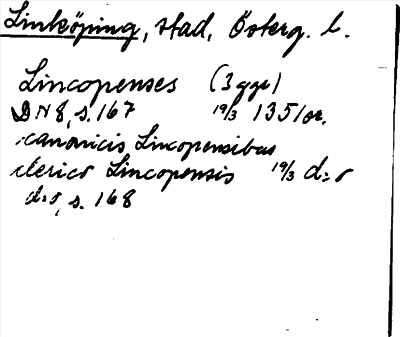 Linköping, stad, Österg. l.
Lincopenses (3 ggr)
DN 8, s. 167 19/3 1351 or.
canonicis Lincopensibus
clerico Lincopensis 19/3 d:o
d:o, s. 168